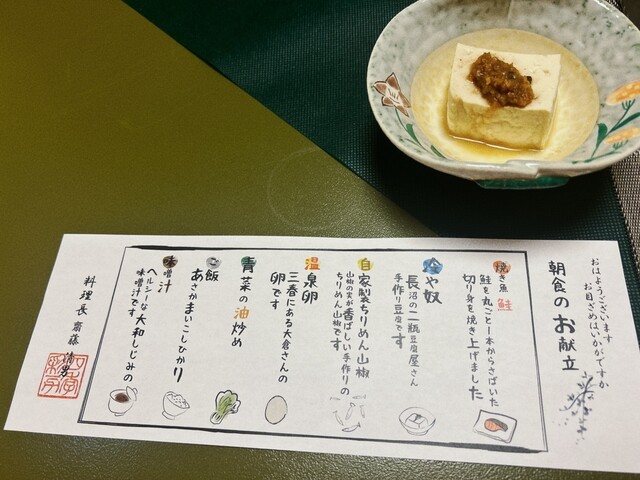 おはようございます
お目ざめはいかがですか
朝食のお献立
焼き魚 鮭
鮭を丸ごと一本からさばいた
切り身を焼き上げました
冷や奴
長沼の二瓶豆腐屋さん
手作り豆腐です
自家製ちりめん山椒
山椒の実が香ばしい手作りの
ちりめん山椒です
温泉卵
三春にある大倉さんの
卵です
青菜の油炒め
御飯
あさかまいこしひかり
味噌汁
ヘルシーな大和しじみの
味噌汁です
料理長 齋藤